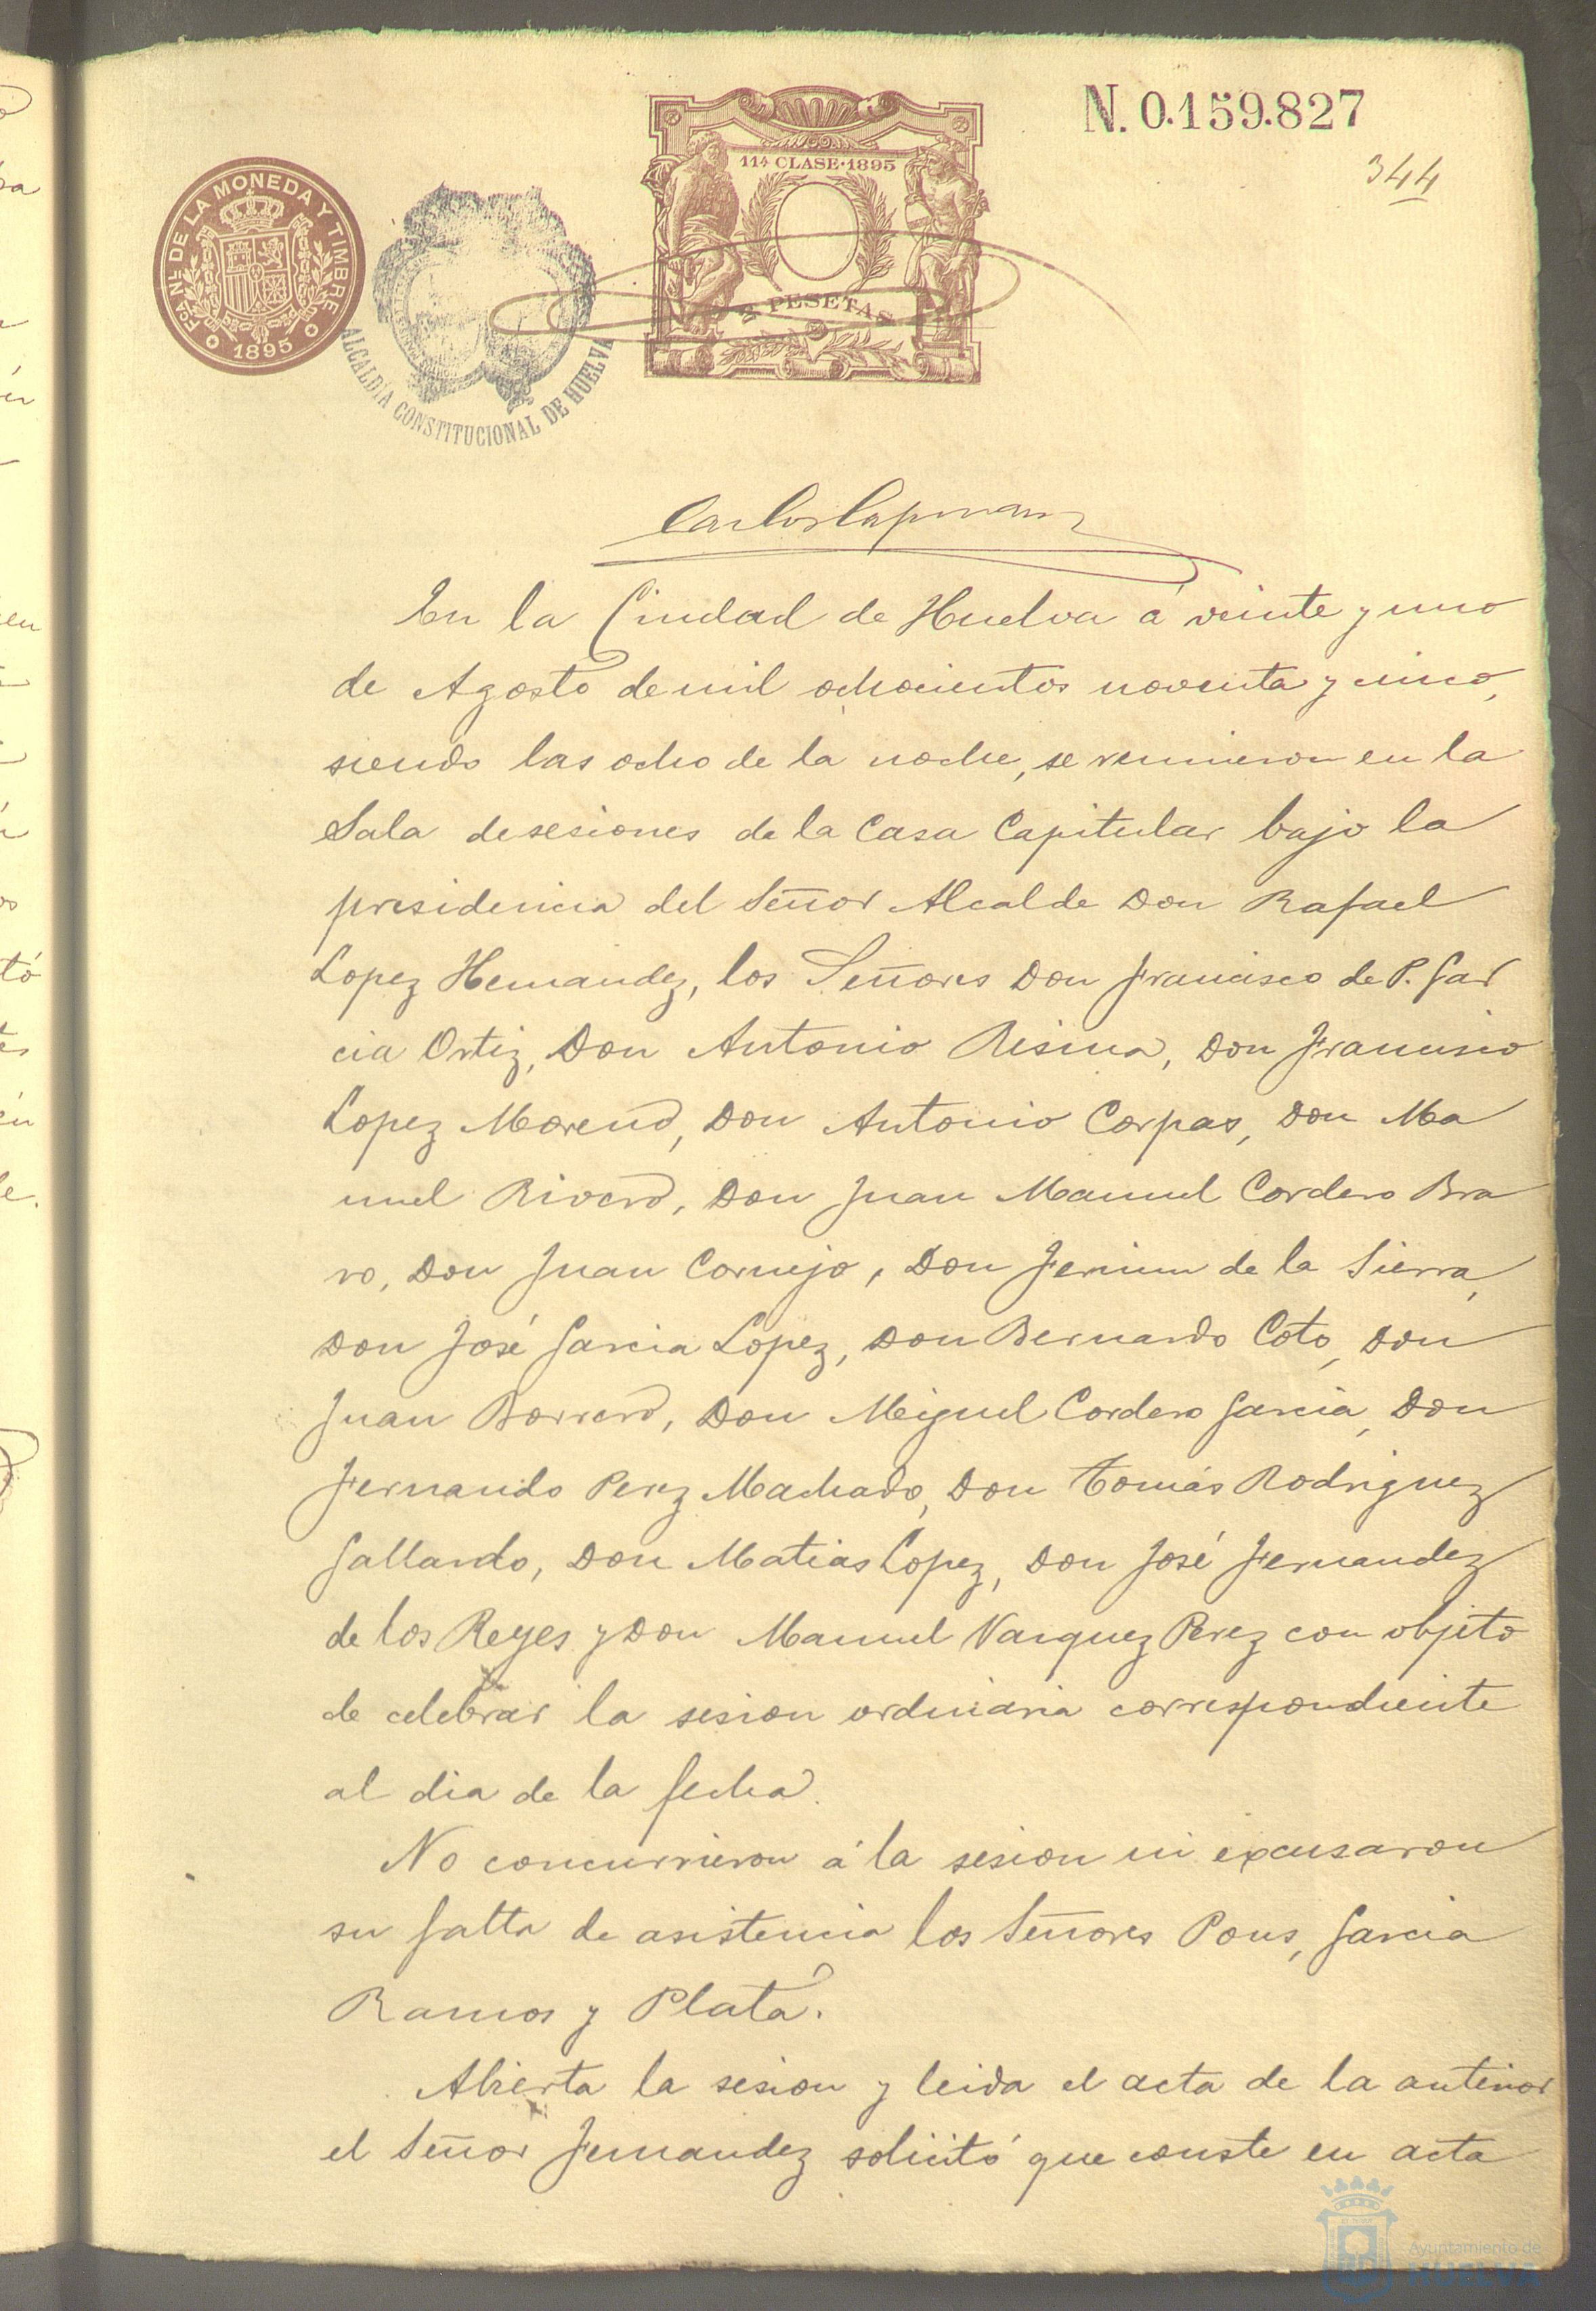 N. 0.159.827
344
11ª CLASE·1895
FCA NAL DE LA MONEDA Y TIMBRE
1895
2 PESETAS
ALCALDÍA CONSTITUCIONAL DE HUELVA
Carlos
En la Ciudad de Huelva á veinte y uno
de Agosto de mil ochocientos noventa y cinco,
siendo las ocho de la noche, se reunieron en la
Sala de sesiones de la Casa Capitular bajo la
presidencia del Señor Alcalde Don Rafael
Lopez Hernandez, los Señores Don Francisco de P. Gar
cia Ortiz, Don Antonio Resina, Don Francisco
Lopez Moreno, Don Antonio Corpas, Don Ma
nuel Rivero, Don Juan Manuel Cordero Bra
vo, Don Juan Cornejo, Don Fermin de la Sierra,
Don José Garcia Lopez, Don Bernardo Coto, Don
Juan Borrero, Don Miguel Cordero Garcia, Don
Fernando Perez Machado, Don Tomás Rodriguez
Gallardo, Don Matias Lopez, Don José Fernandez
de los Reyes y Don Manuel Vazquez Perez con objeto
de celebrar la sesion ordinaria correspondiente
al dia de la fecha.
No concurrieron á la sesion ni excusaron
su falta de asistencia los Señores Pons, Garcia
Ramos y Plata.
Abierta la sesion y leida el acta de la anterior
el Señor Fernandez solicitó que conste en acta
Ayuntamiento de
HUELVA